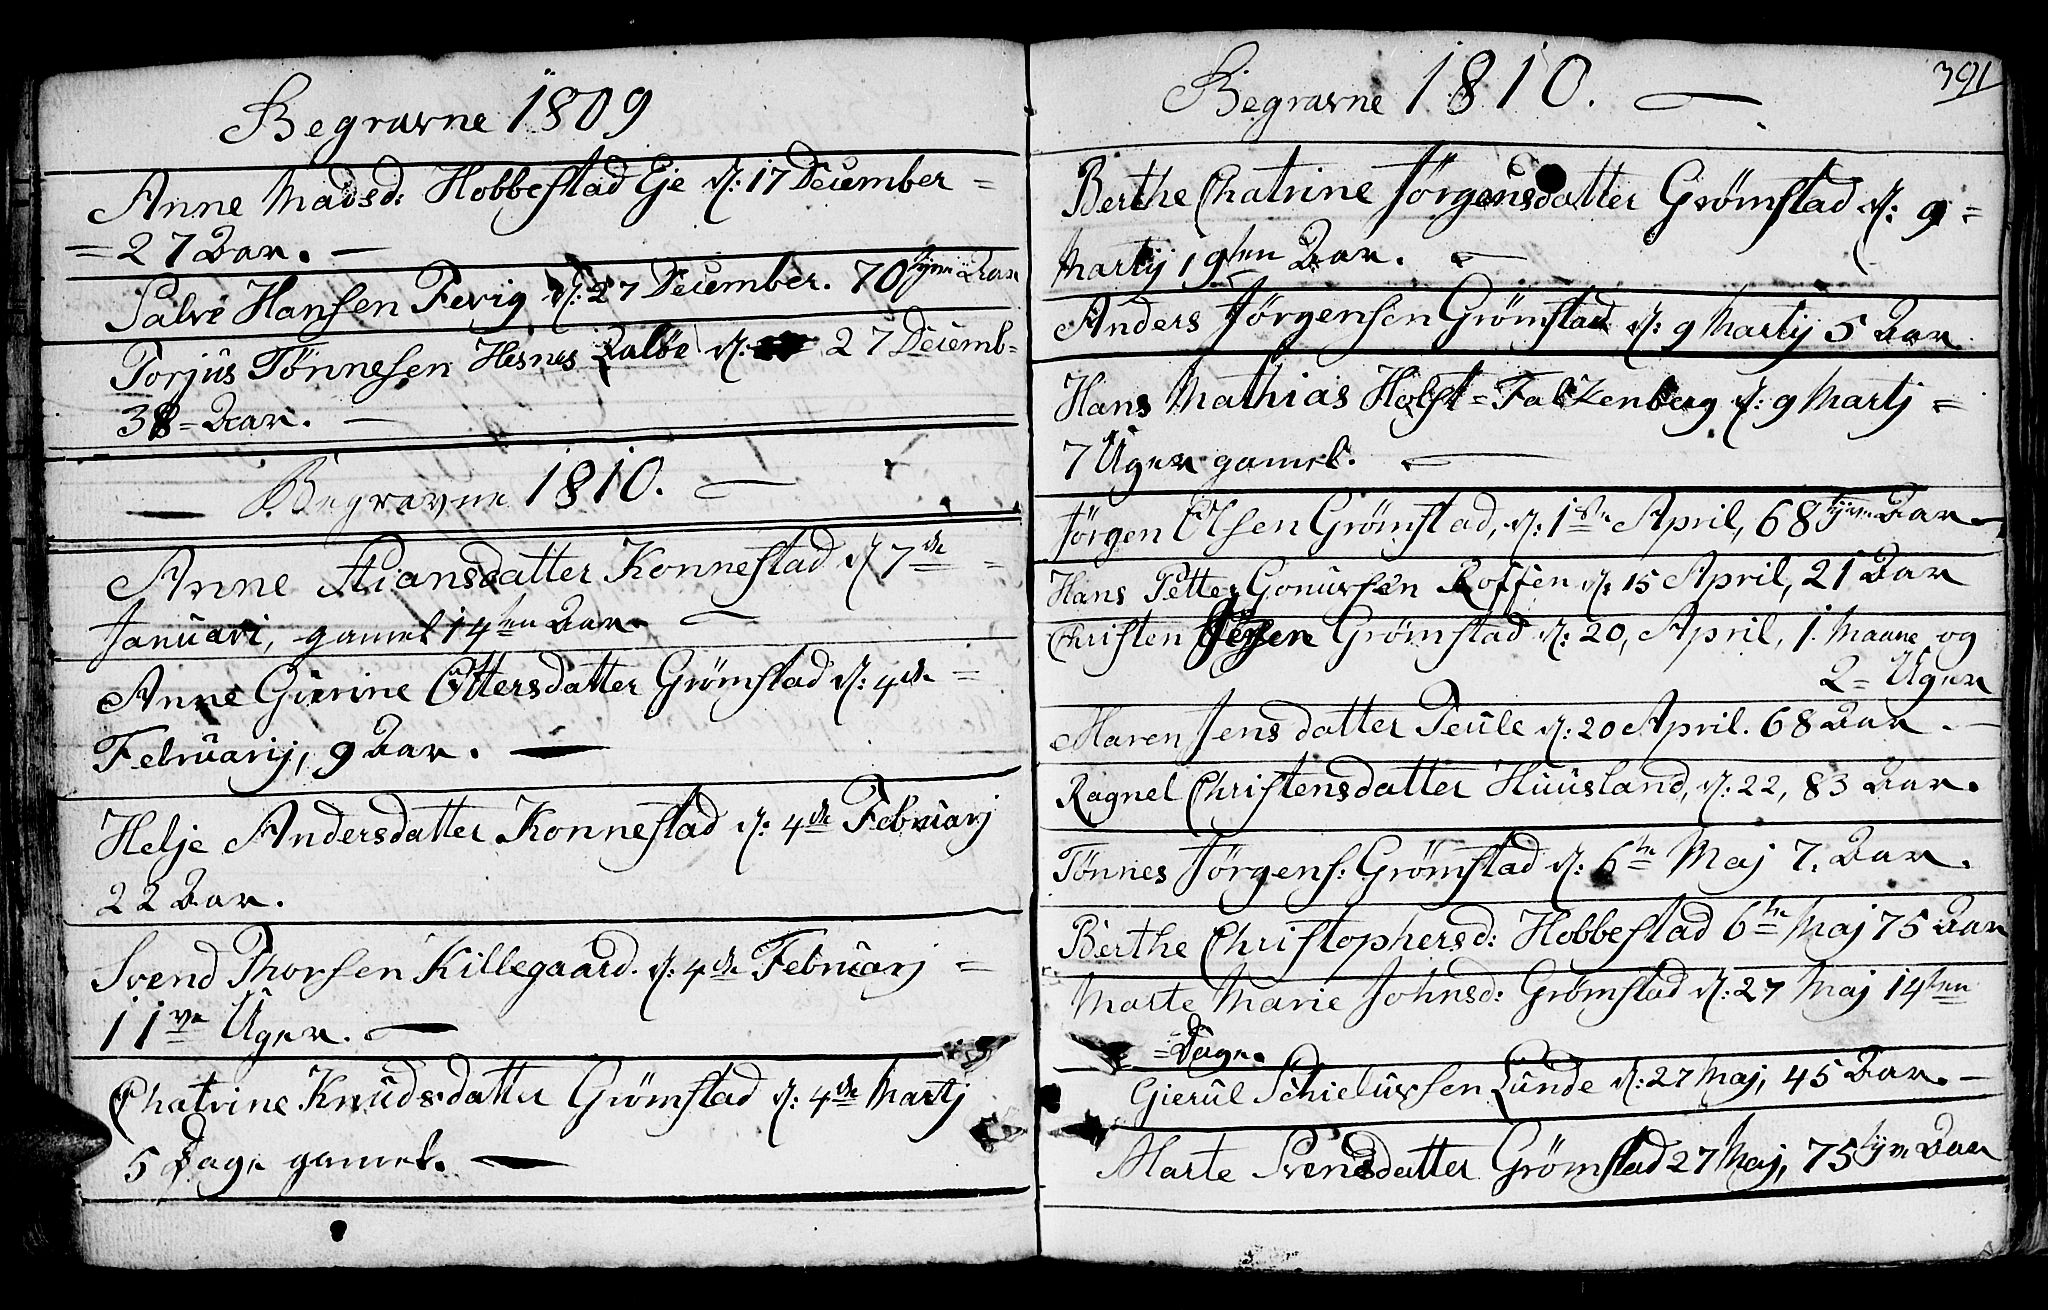 Begravne 1809
Anne Madsd: Hobbestad Eje d: 17 December =
= 27 Aar. —
Salve Hansen Fevig d: 27 December. 70tyve Aar
Torjus Tønnesen Hesnes d: 27 Decemb=
38 = Aar. —
— Begravne 1810. —
Anne Stiansdatter Konnestad d 7de =
Januari, gamel 14ten Aar —
Anne Gurine Ottersdatter Grømstad d: 4de =
Februarij, 9 Aar. —
Helje Andersdatter Konnestad d: 4de Februarj
22 Aar.
Svend Thorsen Killegaard. d: 4de Februarj =
11ve Uger. —
Chatrine Knudsdatter Grømstad d: 4de Martj
5 Dage gamel. —
Begravne 1810. —
391
Berthe Chatrine Jørgensdatter Grømstad d: 9 =
Martij 19ten Aar. —
Anders Jørgensen Grømstad d: 9 Martij 5 Aar
Hans Mathias Holst = Falkenberg d: 9 Martj =
7 Uger gamel. —
Jørgen Olsen Grømstad, d: 1ste April, 68tyve Aar —
Hans Petter d: 15 April, 21 Aar
Christen Grømstad d: 20, April, 1. Maane og
2 = Uger
Maren Jensdatter Teule d: 20 April. 68 Aar. —
Ragnel Christensdatter Huusland, d: 22, 83 Aar.
Tønnes Jørgens: Grømstad d: 6te Maj 7. Aar.
Berthe Christophersd: Hobbestad 6te Maj 75 Aar
Marte Marie Johnsd: Grømstad d: 27 Maj 14ten
= Dage.
Gierul Lunde d: 27 Maj, 45 Aar. —
Marte Svensdatter Grømstad 27 Maj, 75tyve Aar